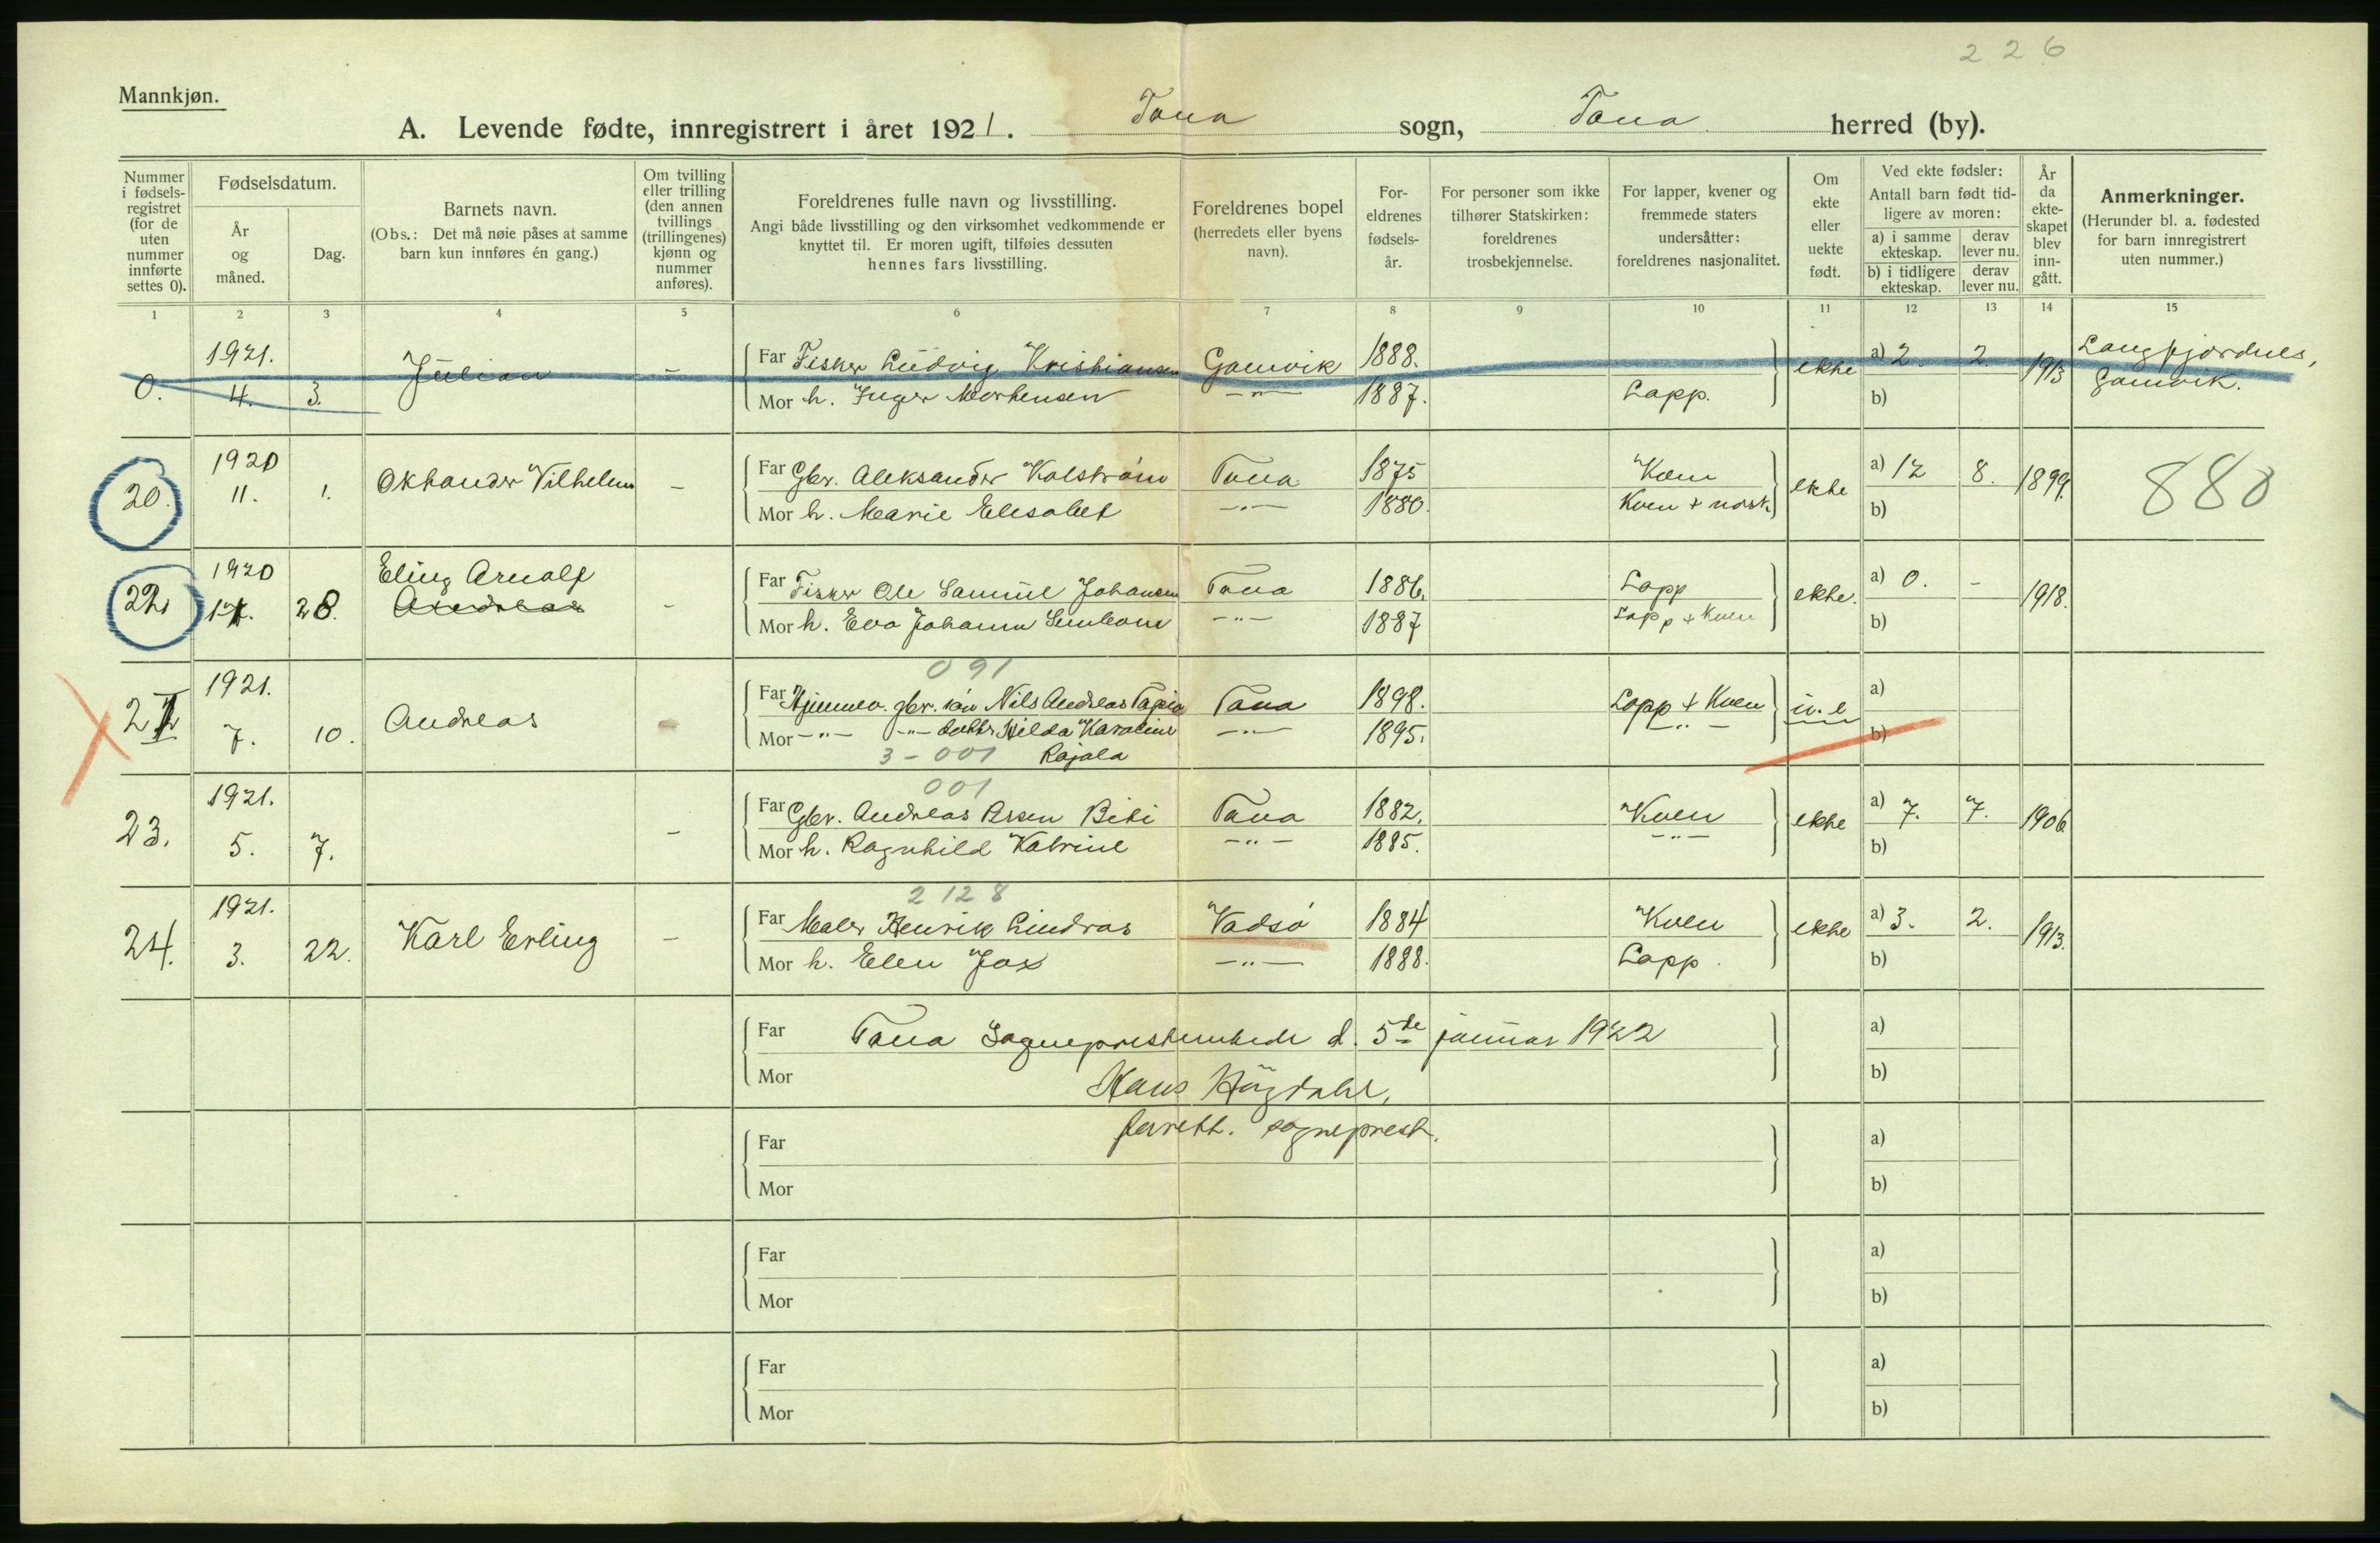 226
Mannkjøn.
A. Levende fødte, innregistrert i året 1921. Tana sogn, Tana herred (by).
Nummer i fødsels-registret (for de uten nummer innførte settes 0).
Fødselsdatum.
År og måned.
Dag.
Barnets navn.
(Obs.: Det må nøie påses at samme barn kun innføres én gang.)
Om tvilling eller trilling (den annen tvillings (trillingenes) kjønn og nummer anføres).
Foreldrenes fulle navn og livsstilling.
Angi både livsstilling og den virksomhet vedkommende er knyttet til. Er moren ugift, tilføies dessuten hennes fars livsstilling.
Foreldrenes bopel (herredets eller byens navn).
For-eldrenes fødsels-år.
For personer som ikke tilhører Statskirken: foreldrenes trosbekjennelse.
For lapper, kvener og fremmede staters undersåtter: foreldrenes nasjonalitet.
Om ekte eller uekte født.
Ved ekte fødsler:
Antall barn født tid-ligere av moren:
a) i samme ekteskap. derav lever nu.
b) i tidligere ekteskap. derav lever nu.
År da ekte-skapet blev inn-gått.
Anmerkninger.
(Herunder bl. a. fødested for barn innregistrert uten nummer.)
1 2 3 4 5 6 7 8 9 10 11 12 13 14 15
0. 1921. 4. 3. Julian - Far Fisker Ludvig Kristiansen Gamvik 1888. ekte a) 2. 2. 1913 Langfjordnes, Gamvik.
Mor h. Inger Mortensen -"- 1887. Lapp. b)
20. 1920 11. 1. Oktander Vilhelm - Far Gbr. Aleksander Kalstrøm Tana 1875 Kven ekte a) 12 8. 1899. 880
Mor h. Marie Elisabet -"- 1880. Kven + norsk. b)
22. 1920 28. Eling Arnalf Andreas - Far Fisker Ole Samuel Johansen Tana 1886. Lapp ekte. a) 0. - 1918.
Mor h. Eva Johanna -"- 1887 Lapp + Kven b)
091
1921. 7. 10. Andreas - Far Hjemmev. gbr. søn Nils Andreas Tapio Tana 1898. Lapp + Kven u. e a)
Mor -"- -"- datter Hilda Karoline -"- 1895. -"- b)
3 - 001 Rajala
001
23. 1921. 5. 7. - Far Gbr. Andreas Persen Biti Tana 1882. Kven ekte a) 7. 7. 1906
Mor h. Ragnhild Katrine -"- 1885. -"- b)
2 128
24. 1921. 3. 22. Karl Erling - Far Maler Henrik Lindras Vadsø 1884 Kven ekte a) 3. 2. 1913.
Mor h. Elen Jox -"- 1888. Lapp. b)
Far Tana Sogneprestembede d. 5te januar 1922 a)
Mor Hans Høgdahl, b)
Far konst. sogneprest. a)
Mor b)
Far a)
Mor b)
Far a)
Mor b)